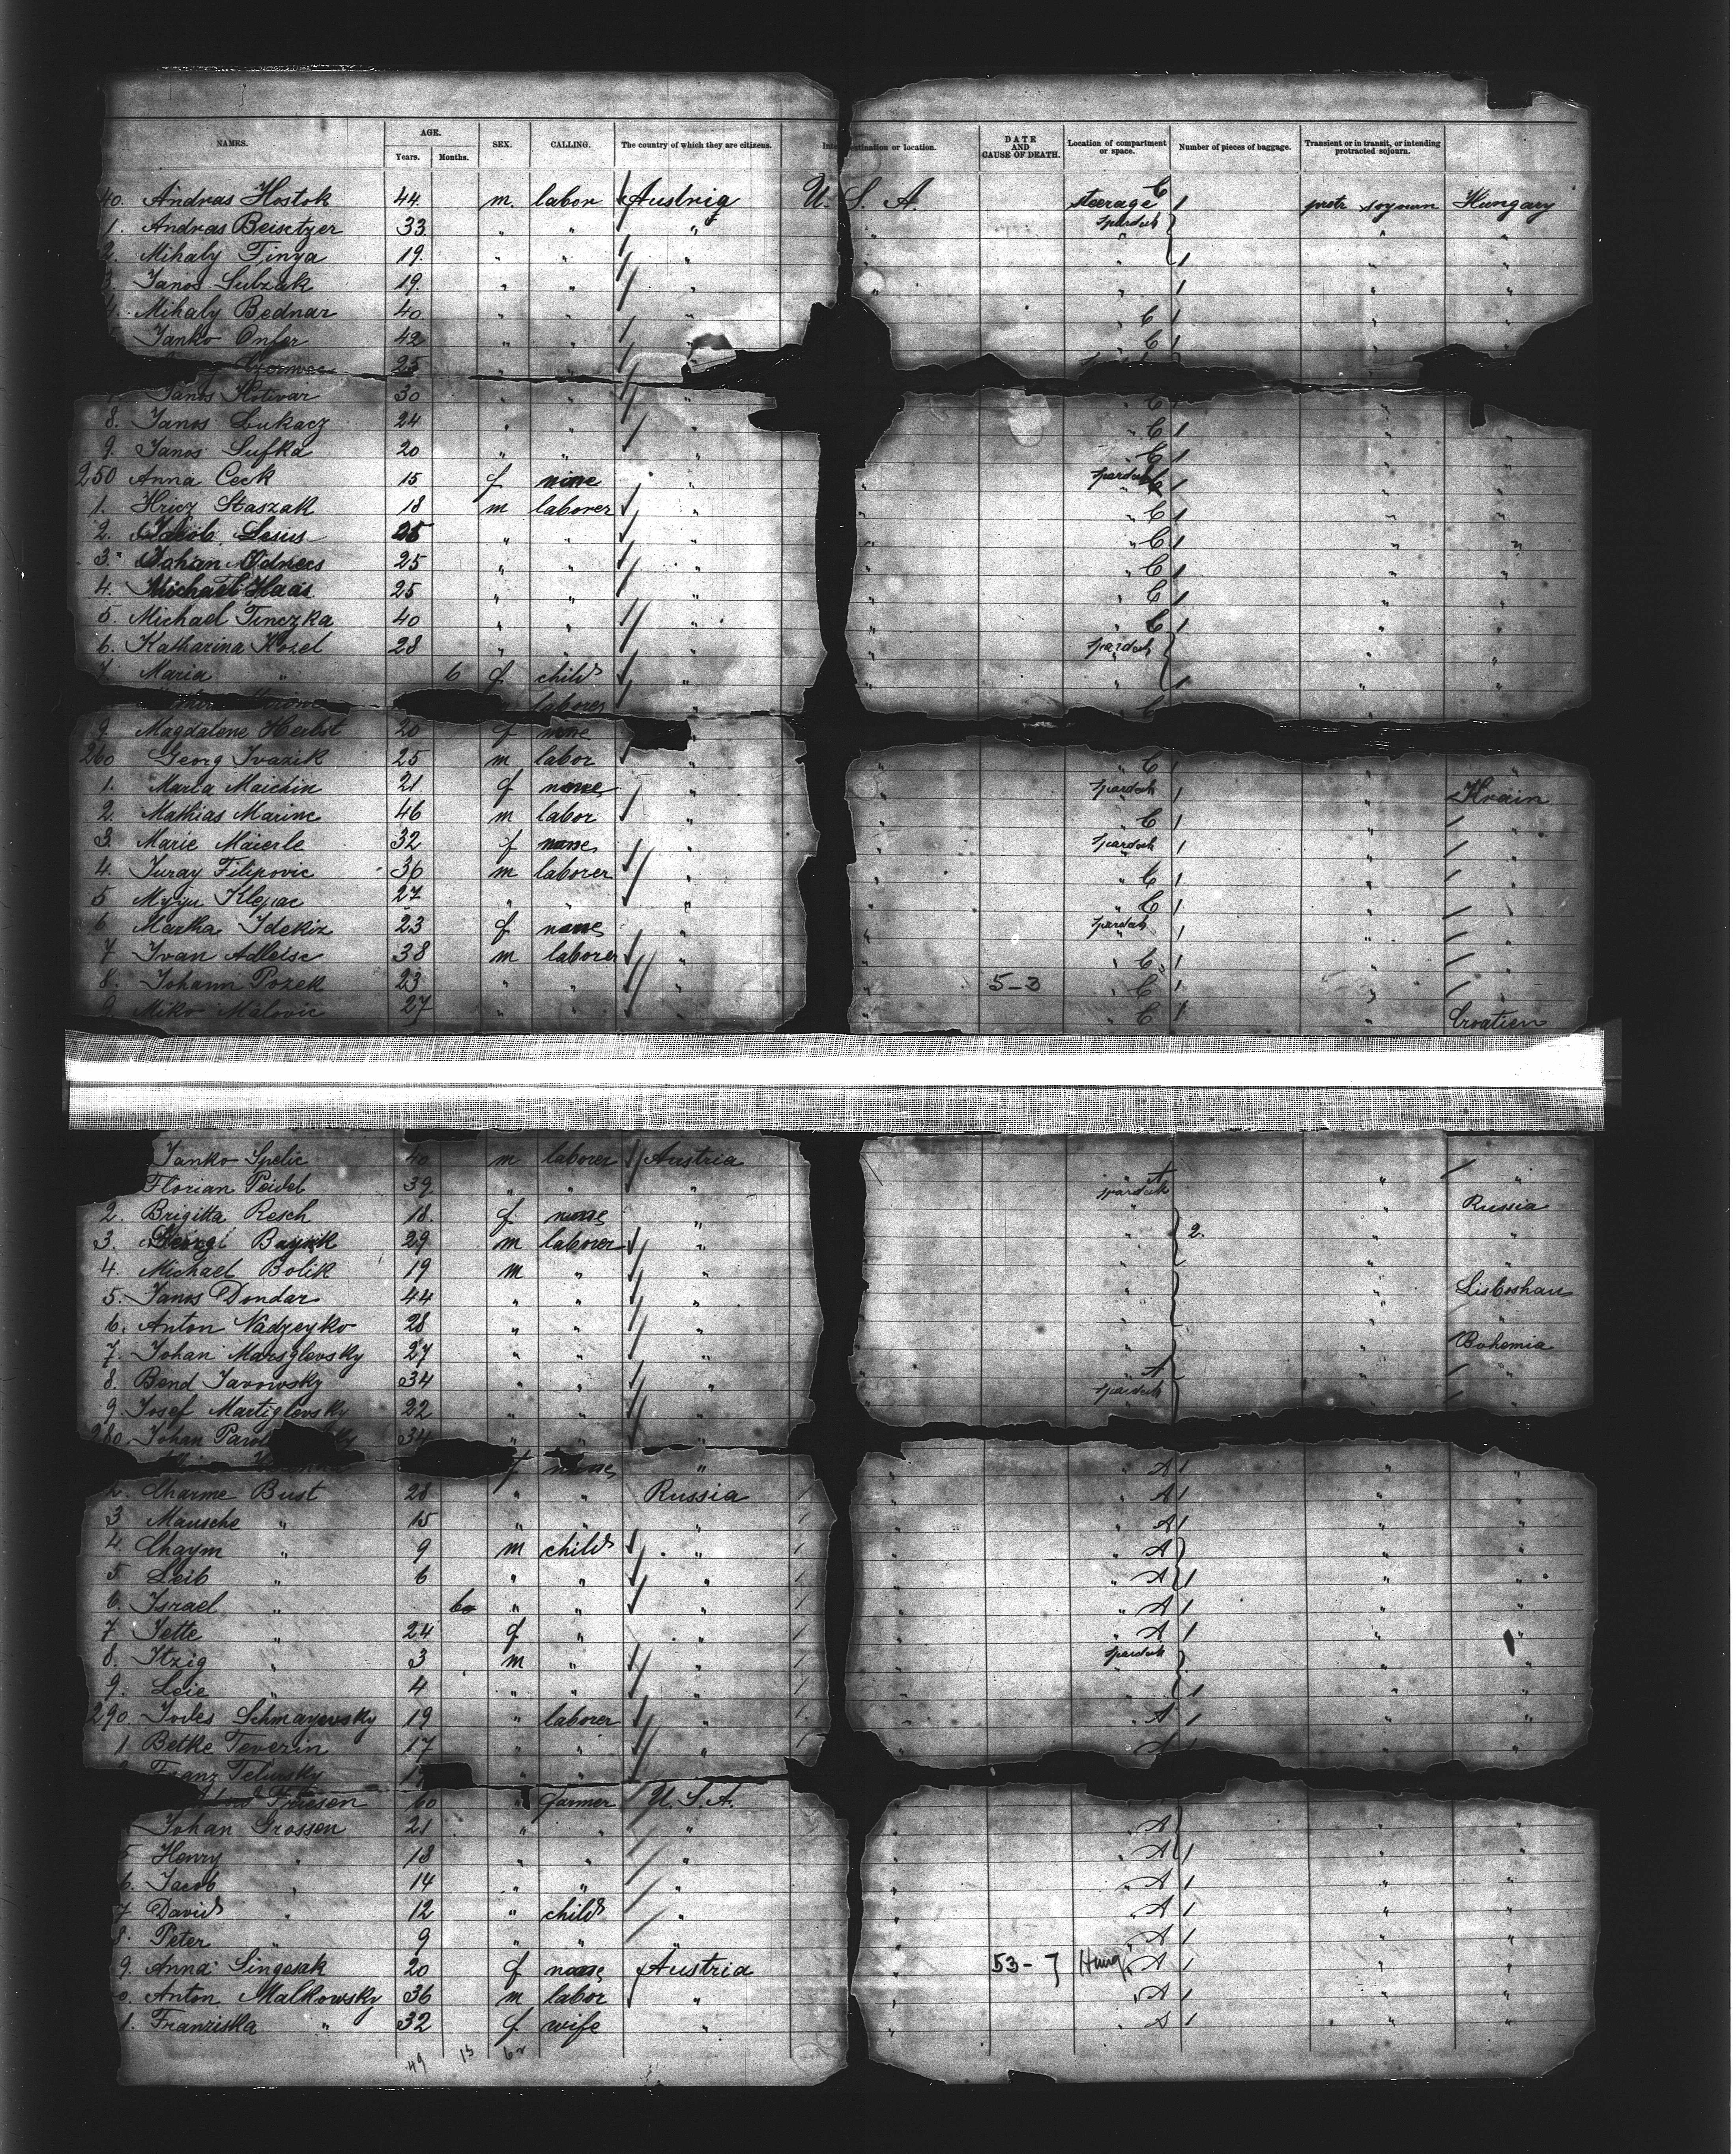 NAMES. AGE. Years. Months. SEX. CALLING. The country of which they are citizens. Inte destination or location. DATE AND CAUSE OF DEATH. Location of compartment or space. Number of pieces of baggage. Transient or in transit, or intending protracted sojourn.
40. Andras Hostok 44 m. labor Austria U. S. A. steerage C 1 protr sojourn Hungary
1. Andras Beisetzer 33 " " " " spardeck " "
2. Mihaly Tinya 19 " " " " 1 " "
3. Janos Subzak 19 " " " " " 1 " "
4. Mihaly Bednar 40 " " " " C 1 " "
5 Janko Onfer 42 " " " " C 1 " "
25 " "
7 Janos Hotivar 30 " " " " C
8. Janos Lukacz 24 " " " " C 1 " "
9. Janos Sufka 20 " " " " C 1 " "
250 Anna Ceck 15 f none " " spardeck 1 " "
1. Hricz Staszak 18 m laborer " " " C 1 " "
2. Jacob Lesius 25 " " " " " C 1 " "
3. Johan 25 " " " " " C 1 " "
4. Michael Haas 25 " " " " " C 1 " "
5. Michael Tinczka 40 " " " " " C 1 " "
6. Katharina Kozel 28 " " " " spardeck "
7 Maria " 6 f child " " " 1 " "
laborer
9. Magdalene Herbst 20 f none "
260 Georg Ivazik 25 m labor " " " C 1 " "
1. Maria Maichin 21 f none " " spardeck 1 " Krain
2. Mathias Marine 46 m labor " " C 1 " "
3. Marie Maierle 32 f none " " spardeck 1 " "
4. Juray Filipovic 36 m laborer " " " C 1 " "
5 Klepac 27 " " " " " C 1 " "
6 Martha Idekiz 23 f none " " spardeck 1 " "
7 Ivan Adleisc 38 m laborer " " " C 1 " "
8. Johann Pozek 23 " " " " 5-3 " C 1 " "
9 Miko Malovic 27 " " " " " C 1 " Croatien
Janko Spelic 40 m laborer Austria " "
Florian Peidel 39 " " " A spardeck " "
2. Brigitta Resch 18. f none " " " Russia
3. Bayuk 29 m laborer " " 2. " "
4. Michael Bolik 19 m " " " " "
5. Janos Dondar 44 " " " " " Lisboshau
6. Anton Nadzeyko 28 " " " " " "
7. Johan Marsglevsky 27 " " " " " Bohemia
8. Bend Javorvsky 34 " " " A " "
9. Josef Martiglovsky 22 " " " spardeck "
280. Johan 34 " " "
f none " " A 1 " "
2. Charme Bust 28 " " Russia " A 1 " "
3 Mausche " 15 " " " " A 1 " "
4 Chaym " 9 m child " " A " "
5 Leib " 6 " " " " " A 1 " "
6. Israel " 6 " " " " " A 1 " "
7 Jette " 24 f " " " " A 1 " "
8. Itzig " 3 m " " " spardeck " "
9. Leie " 4 " " " " " 1 " "
290. Jodes Schmayevsky 19 " laborer " " " A 1 " "
1 Betke Teverin 17 " " " " A 1
Franz " " "
Friesen 60 " farmer U. S. A.
Johan Grossen 21 " " " " " A " "
5 Henry " 18 " " " " " A 1 " "
6. Jacob " 14 " " " " " A 1 " "
7 David " 12 " child " " " A 1 " "
8. Peter " 9 " " " " " A 1 " "
9. Anna Singesak 20 f none Austria " 53-7 Hung. A 1 " "
0. Anton Malkowsky 36 m labor " " " A 1 " "
1. Franziska " 32 f wife " " " A 1 " "
49 13